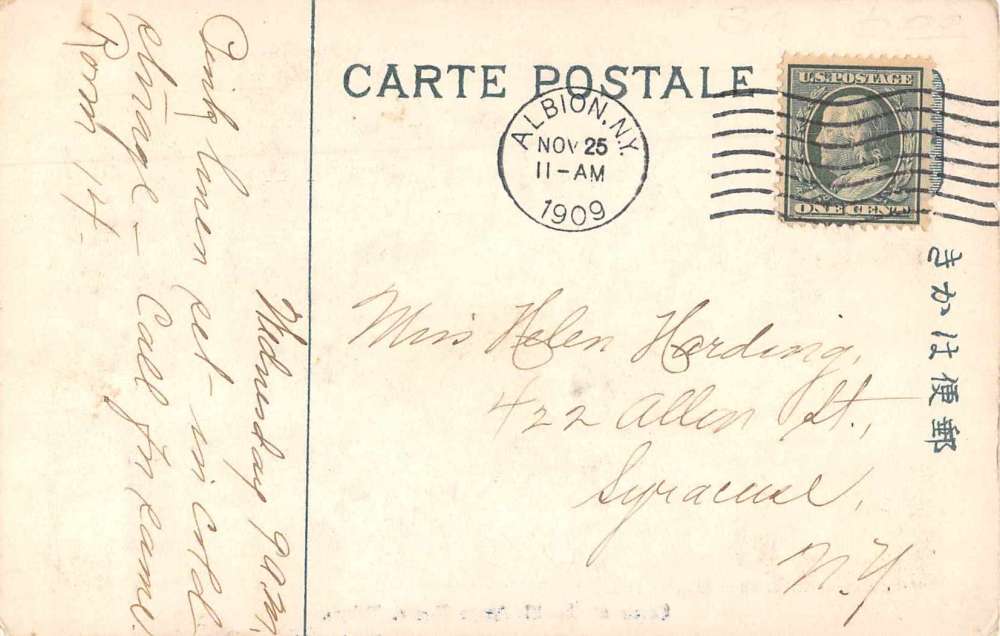 CARTE POSTALE
U.S. POSTAGE
ALBION, N.Y.
NOV 25
11-AM
1909
ONE CENT
きかは便郵
Miss Helen Harding,
422 Allen St.,
Syracuse,
N.Y.
Wednesday 9 a.m.
linen set - in cold
storage - Call for same
Room 14.